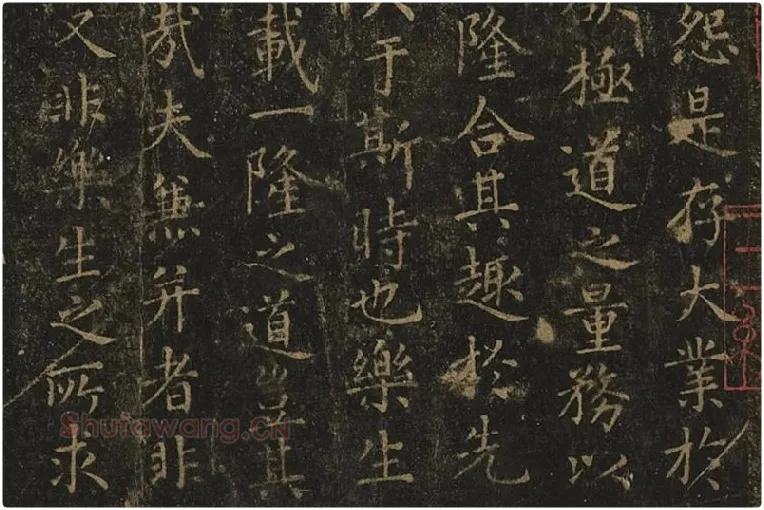 怨是存大業於
極道之量務以
隆合其趣於先
于斯時也樂生
載一隆之道豈其
哉夫兼并者非
又非樂生之所求
Shufawang.cn